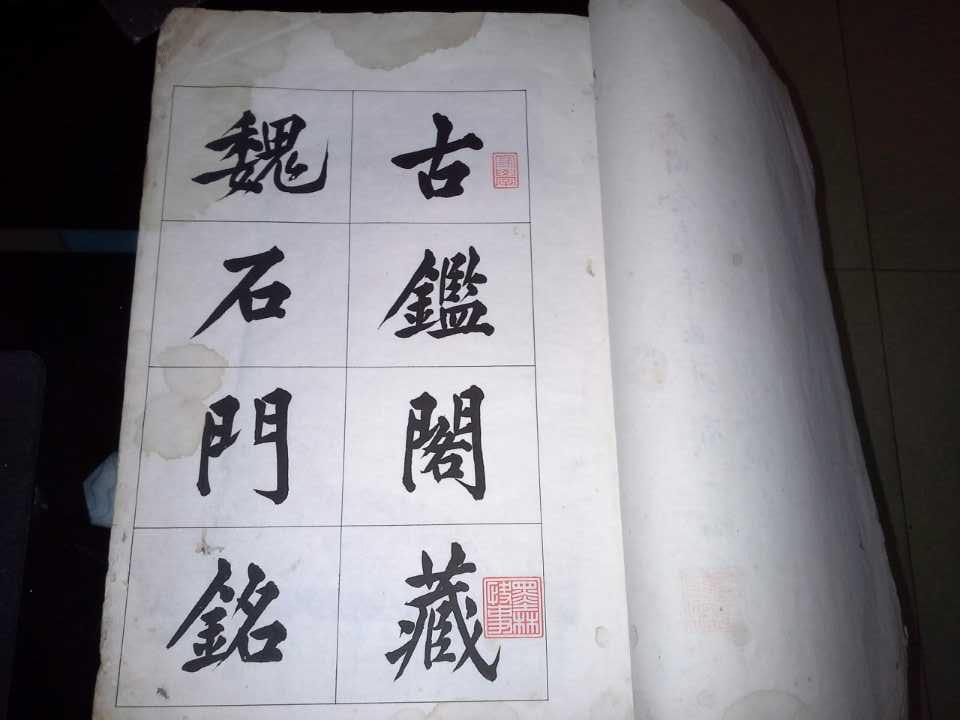 古鑑閣藏
魏石門銘